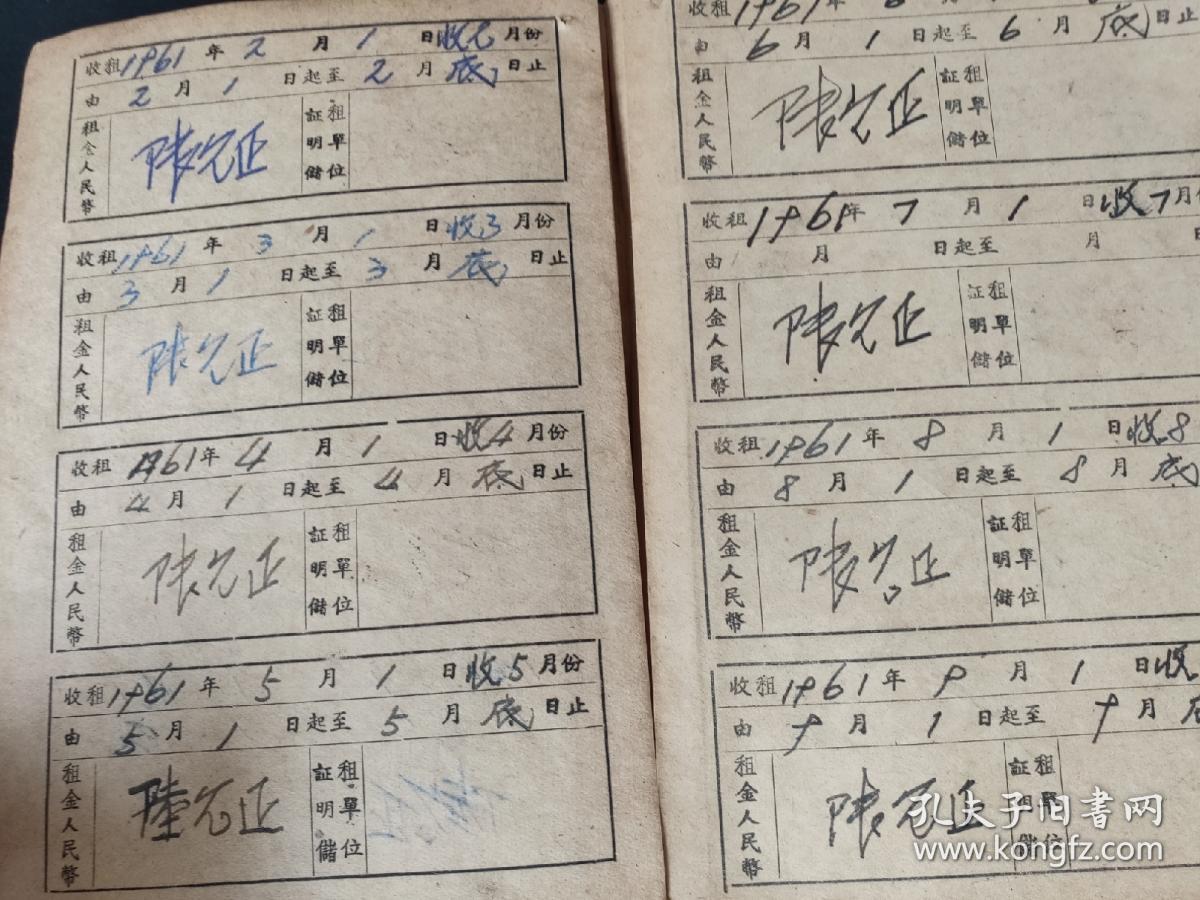 收租1961年2月1日收2月份
由2月1日起至2月底日止
租金人民幣
陳允正
証明儲
租單位
收租1961年3月1日收3月份
由3月1日起至3月底日止
租金人民幣
陳允正
証明儲
租單位
收租1961年4月1日收4月份
由4月1日起至4月底日止
租金人民幣
陳允正
証明儲
租單位
收租1961年5月1日收5月份
由5月1日起至5月底日止
租金人民幣
陳允正
証明儲
租單位
收租1961年6月
由6月1日起至6月底日止
租金人民幣
陳允正
証明儲
租單位
收租1961年7月1日收7月份
由 月 日起至 月 日
租金人民幣
陳允正
証明儲
租單位
收租1961年8月1日收8
由8月1日起至8月底
租金人民幣
陳允正
証明儲
租單位
收租1961年9月1日收
由9月1日起至9月底
租金人民幣
陳允正
証明儲
租單位
孔夫子旧书网
www.kongfz.com